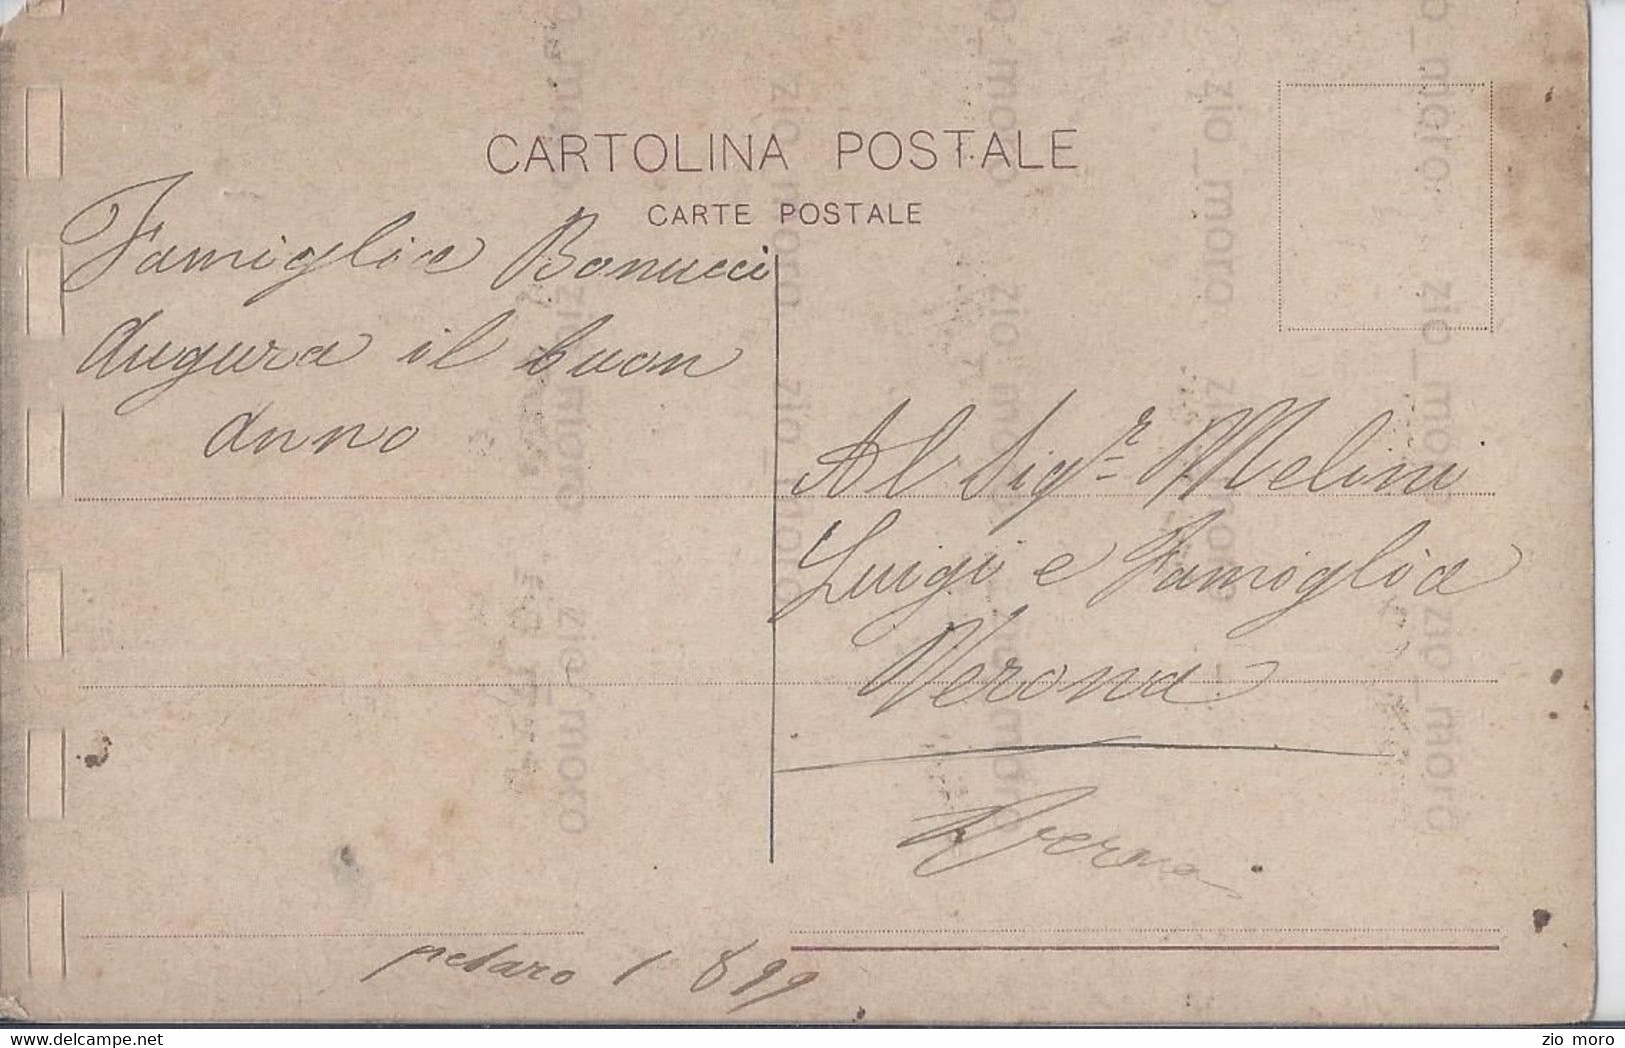 CARTOLINA POSTALE
CARTE POSTALE
Famiglia Bonucci
Augura il buon
anno
Al Sigr Melini
Luigi e Famiglia
Verona
pesaro 1 899
zio moro